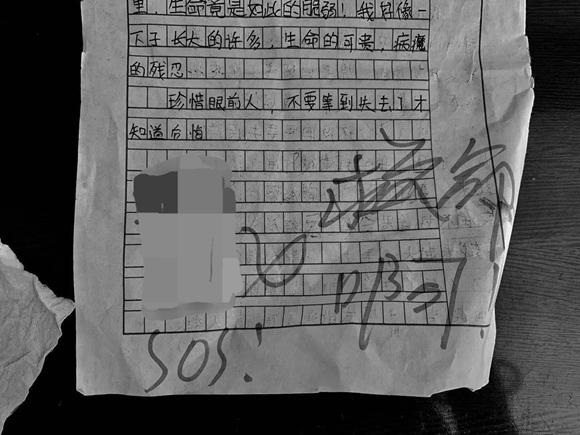 里，生命竟是如此的脆弱！我好像一
下子长大的许多，生命的可贵，病魔
的残忍……
珍惜眼前人，不要等到失去了才
知道后悔
救命
啊！
SOS！